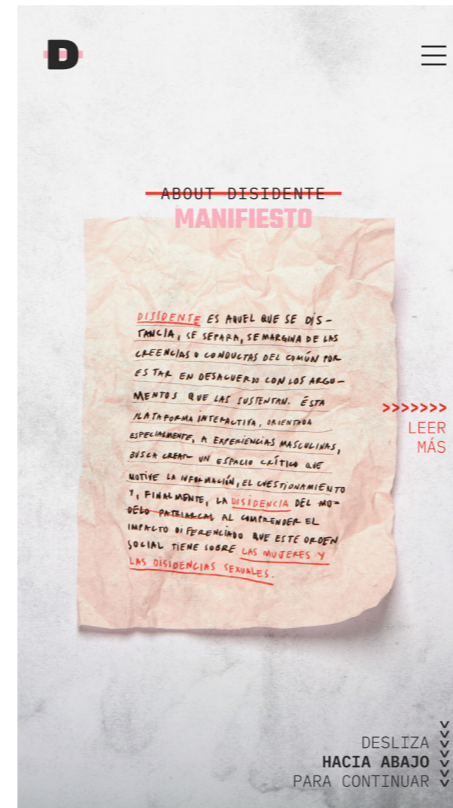 D
ABOUT DISIDENTE
MANIFIESTO
DISIDENTE ES AQUEL QUE SE DIS-
TANCIA, SE SEPARA, SE MARGINA DE LAS
CREENCIAS O CONDUCTAS DEL COMÚN POR
ESTAR EN DESACUERDO CON LOS ARGU-
MENTOS QUE LAS SUSTENTAN. ÉSTA
PLATAFORMA INTERACTIVA, ORIENTADA
ESPECIALMENTE, A EXPERIENCIAS MASCULINAS,
BUSCA CREAR UN ESPACIO CRÍTICO QUE
MOTIVE LA INFORMACIÓN, EL CUESTIONAMIENTO
Y, FINALMENTE, LA DISIDENCIA DEL MO-
DELO PATRIARCAL AL COMPRENDER EL
IMPACTO DIFERENCIADO QUE ESTE ORDEN
SOCIAL TIENE SOBRE LAS MUJERES Y
LAS DISIDENCIAS SEXUALES.
>>>>>>>
LEER
MÁS
DESLIZA
HACIA ABAJO
PARA CONTINUAR